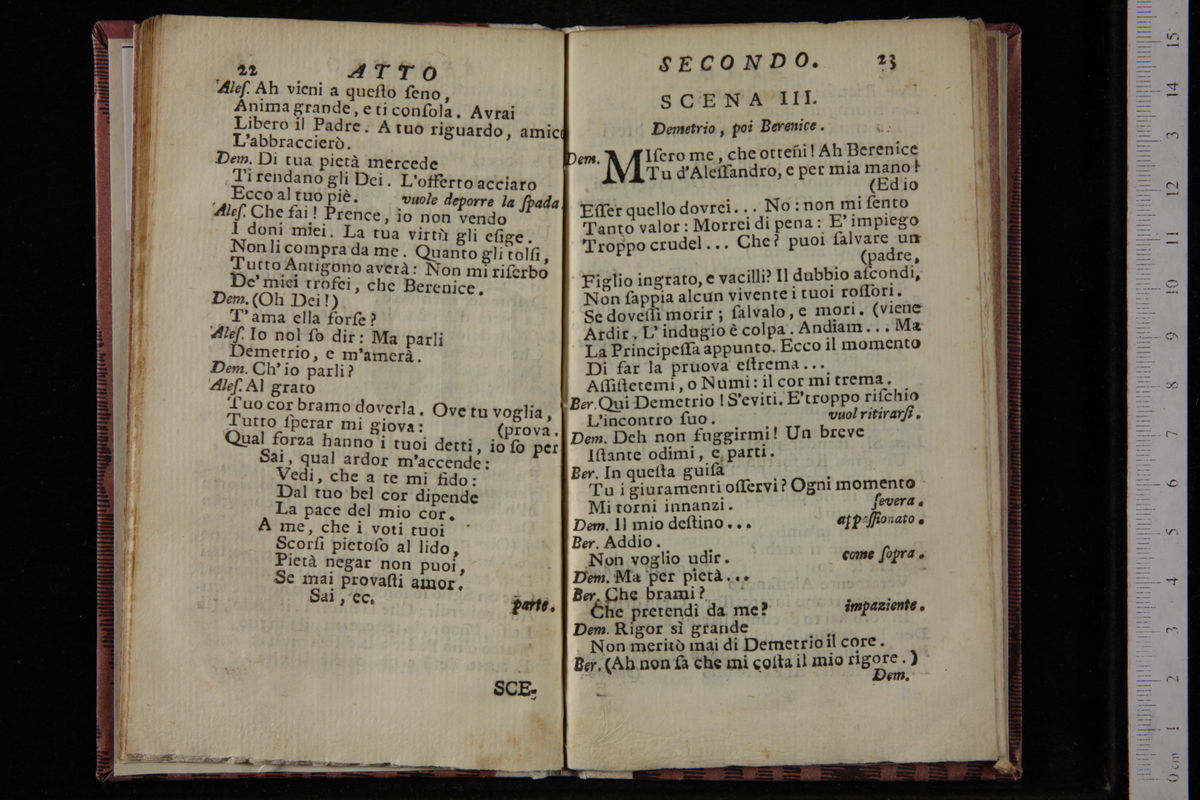 22 ATTO
Aleſ. Ah vieni a queſto ſeno,
Anima grande, e ti conſola. Avrai
Libero il Padre. A tuo riguardo, amico
L'abbraccierò.
Dem. Di tua pietà mercede
Ti rendano gli Dei. L'offerto acciaro
Ecco al tuo piè. vuole deporre la ſpada.
Aleſ. Che fai! Prence, io non vendo
I doni miei. La tua virtù gli eſige.
Non li compra da me. Quanto gli tolſi,
Tutto Antigono averà: Non mi riſerbo
De' miei trofei, che Berenice.
Dem. (Oh Dei!)
T'ama ella forſe?
Aleſ. Io nol ſo dir: Ma parli
Demetrio, e m'amerà.
Dem. Ch'io parli?
Aleſ. Al grato
Tuo cor bramo doverla. Ove tu voglia,
Tutto ſperar mi giova: (prova.
Qual forza hanno i tuoi detti, io ſo per
Sai, qual ardor m'accende:
Vedi, che a te mi fido:
Dal tuo bel cor dipende
La pace del mio cor.
A me, che i voti tuoi
Scorſi pietoſo al lido,
Pietà negar non puoi,
Se mai provaſti amor.
Sai, ec. parte.
SCE-
SECONDO. 23
SCENA III.
Demetrio, poi Berenice.
Dem. MIſero me, che otteñi! Ah Berenice
Tu d'Aleſſandro, e per mia mano!
(Ed io
Eſſer quello dovrei... No: non mi ſento
Tanto valor: Morrei di pena: E' impiego
Troppo crudel... Che? puoi ſalvare un
(padre,
Figlio ingrato, e vacilli? Il dubbio aſcondi,
Non ſappia alcun vivente i tuoi roſſori.
Se doveſſi morir; ſalvalo, e mori. (viene
Ardir. L'indugio è colpa. Andiam... Ma
La Principeſſa appunto. Ecco il momento
Di far la pruova eſtrema...
Aſſiſtetemi, o Numi: il cor mi trema.
Ber. Qui Demetrio! S'eviti. E'troppo riſchio
L'incontro ſuo. vuol ritirarſi.
Dem. Deh non fuggirmi! Un breve
Iſtante odimi, e parti.
Ber. In queſta guiſa
Tu i giuramenti oſſervi? Ogni momento
Mi torni innanzi. ſevera.
Dem. Il mio deſtino... appaſſionato.
Ber. Addio.
Non voglio udir. come ſopra.
Dem. Ma per pietà...
Ber. Che brami?
Che pretendi da me? impaziente.
Dem. Rigor sì grande
Non meritò mai di Demetrio il core.
Ber. (Ah non ſa che mi coſta il mio rigore.)
Dem.
0 cm 1 2 3 4 5 6 7 8 9 10 11 12 13 14 15